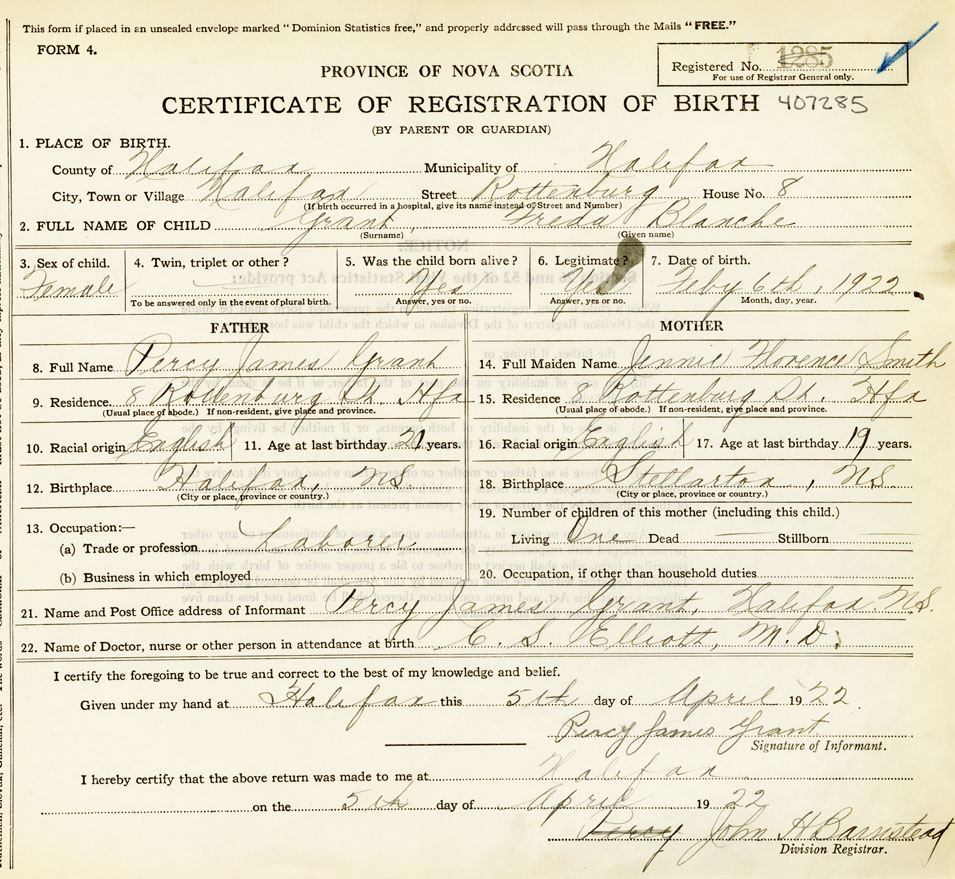 This form if placed in an unsealed envelope marked "Dominion Statistics free," and properly addressed will pass through the Mails "FREE."
FORM 4.
Registered No. 1285
For use of Registrar General only.
PROVINCE OF NOVA SCOTIA
CERTIFICATE OF REGISTRATION OF BIRTH 407285
(BY PARENT OR GUARDIAN)
1. PLACE OF BIRTH.
County of Halifax Municipality of Halifax
City, Town or Village Halifax Street Rottenburg House No. 8
(If birth occurred in a hospital, give its name instead of Street and Number)
2. FULL NAME OF CHILD Grant, Freda Blanche
(Surname) (Given name)
3. Sex of child. 4. Twin, triplet or other? 5. Was the child born alive? 6. Legitimate? 7. Date of birth.
Female Yes Yes Feby 6th, 1922.
To be answered only in the event of plural birth. Answer, yes or no. Answer, yes or no. Month, day, year.
FATHER MOTHER
8. Full Name Percy James Grant 14. Full Maiden Name Jennie Florence Smith
9. Residence. 8 Rottenburg St. Hfx 15. Residence 8 Rottenburg St. Hfx
(Usual place of abode.) If non-resident, give place and province. (Usual place of abode.) If non-resident, give place and province.
10. Racial origin English 11. Age at last birthday years. 16. Racial origin English 17. Age at last birthday 19 years.
12. Birthplace Halifax, NS 18. Birthplace Stellarton, NS
(City or place, province or country.) (City or place, province or country.)
13. Occupation:— 19. Number of children of this mother (including this child.)
(a) Trade or profession Laborer Living One Dead Stillborn
(b) Business in which employed 20. Occupation, if other than household duties
21. Name and Post Office address of Informant Percy James Grant, Halifax N.S.
22. Name of Doctor, nurse or other person in attendance at birth C. S. Elliott, M.D.
I certify the foregoing to be true and correct to the best of my knowledge and belief.
Given under my hand at Halifax this 5th day of April 1922.
Percy James Grant
Signature of Informant.
I hereby certify that the above return was made to me at Halifax
on the 5th day of April 1922
Percy John H Barnstead
Division Registrar.